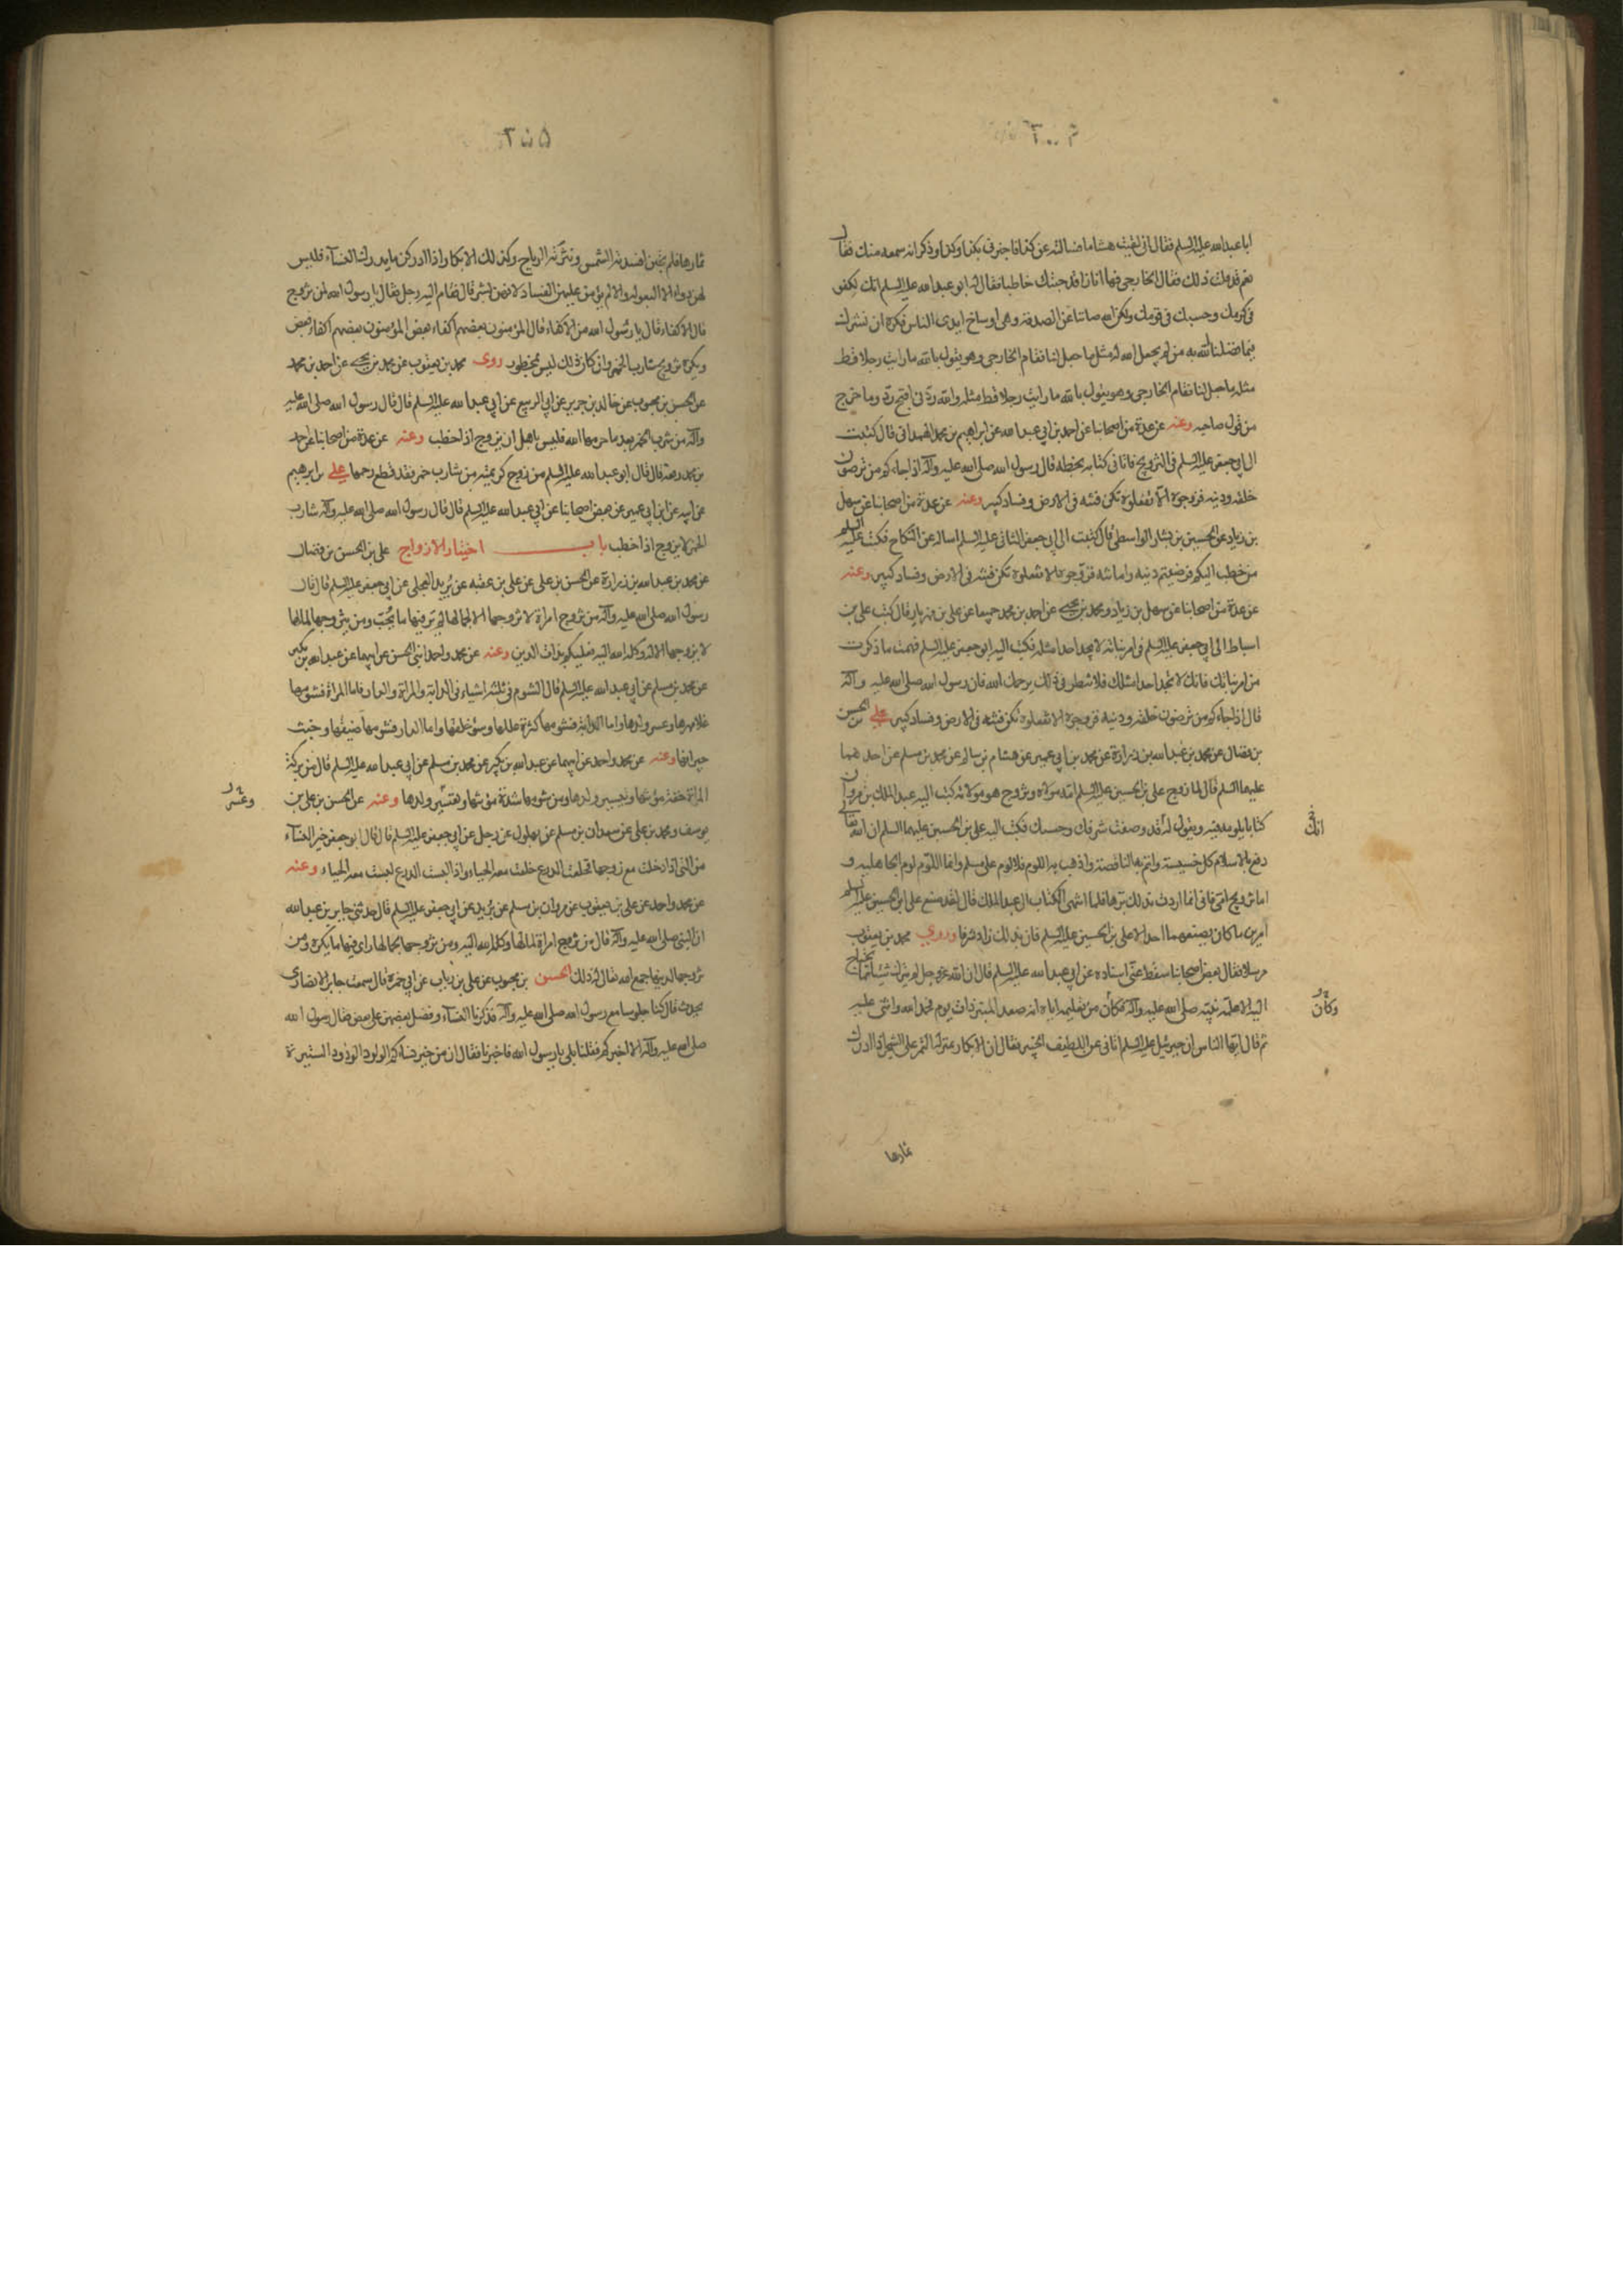 ابا عبدالله عليه السلم فقال اني لقيت هشاما فسالته عن كذا فاخبرني بكذا وكذا وذكر انه سمعه منك فقال
نعم قد قلت ذلك فقال الخارجي فها انا ذا قد جئتك خاطبا فقال له ابو عبدالله عليه السلم انك لكفو
في كرمك وحسبك في قومك ولكن الله صاننا عن الصدقة وهي اوساخ ايدي الناس فنكره ان نشرك
فيما فضلنا الله به من لم يجعل الله له مثل ما جعل لنا فقام الخارجي وهو يقول بالله ما رايت رجلا قط
مثله ما جعل لنا فقام الخارجي وهو يقول بالله ما رايت رجلا قط مثله والله ردني اقبح رد وما خرج
من قول صاحبه وعنه عن عدة من اصحابنا عن احمد بن ابي عبدالله عن ابراهيم بن محمد الهمداني قال كتبت
الى ابي جعفر عليه السلم في التزويج فاتاني كتابه بخطه قال رسول الله صلى الله عليه وآله اذا جاءكم من ترضون
خلقه ودينه فزوجوه الا تفعلوه تكن فتنه في الارض وفساد كبير وعنه عن عدة من اصحابنا عن سهل
بن زياد عن الحسين بن بشار الواسطي قال كتبت الى ابي جعفر الثاني عليه السلم اساله عن النكاح فكتب عليه السلم
من خطب اليكم فرضيتم دينه وامانته فزوجوه الا تفعلوه تكن فتنه في الارض وفساد كبير وعنه
عن عدة من اصحابنا عن سهل بن زياد ومحمد بن يحيى عن احمد بن محمد جميعا عن علي بن مهزيار قال كتب علي بن
اسباط الى ابي جعفر عليه السلم في امر بناته لا يجد احدا مثله فكتب اليه ابو جعفر عليه السلم فهمت ما ذكرت
من امر بناتك فانك لا تجد احدا مثلك فلا تنظر في ذلك يرحمك الله فان رسول الله صلى الله عليه وآله
قال اذا جاءكم من ترضون خلقه ودينه فزوجوه الا تفعلوه تكن فتنه في الارض وفساد كبير علي بن الحسن
بن فضال عن محمد بن عبدالله بن زرارة عن محمد بن ابي عمير عن هشام بن سالم عن محمد بن مسلم عن احدهما
عليهما السلم قال لما زوج علي بن الحسين عليه السلم امه مولاه وتزوج هو مولاته كتب اليه عبدالملك بن مروان
كتابا يلومه فيه ويقول له قد وضعت شرفك وحسبك فكتب اليه علي بن الحسين عليهما السلم ان الله تعالى
انك
رفع بالاسلام كل خسيسة واتم به الناقصة واذهب به اللوم فلا لوم على مسلم وانما اللوم لوم الجاهلية و
اما تزويج امي فاني انما اردت بذلك برها فلما انتهى الكتاب الى عبدالملك قال لقد صنع علي بن الحسين عليه السلم
امرين ما كان يصنعهما احد الا علي بن الحسين عليه السلم فان بذلك زاد شرفا وروى محمد بن يعقوب
مرسلا فقال بعض اصحابنا سقط عني اسناده عن ابي عبدالله عليه السلم قال ان الله عز وجل لم يترك شيئا مما يحتاج
اليه الا علمه نبيه صلى الله عليه وآله فكان من تعليمه اياه انه صعد المنبر ذات يوم فحمد الله واثنى عليه
وكان
ثم قال ايها الناس ان جبرئيل عليه السلم اتاني عن اللطيف الخبير فقال ان الابكار بمنزلة الثمر على الشجر اذا ادرك
ثمارها
٢٥٥
ثمارها فلم يجتن افسدته الشمس ونثرته الرياح وكذلك الابكار اذا ادركن ما يدرك النسآء فليس
لهن دواء الا البعولة والا لم يؤمن عليهن الفساد لانهن بشر قال فقام اليه رجل فقال يا رسول الله لمن نزوج
قال الاكفاء قال يا رسول الله من الاكفاء قال المؤمنون بعضهم اكفاء بعض المؤمنون بعضهم اكفاء بعض
ويكره تزويج شارب الخمر وان كان ذلك ليس بمحظور روى محمد بن يعقوب عن محمد بن يحيى عن احمد بن محمد
عن الحسن بن محبوب عن خالد بن جرير عن ابي الربيع عن ابي عبدالله عليه السلم قال قال رسول الله صلى الله عليه
وآله من شرب الخمر بعد ما حرمها الله فليس باهل ان يزوج اذا خطب وعنه عن عدة من اصحابنا عن احمد
بن محمد رفعه قال قال ابو عبدالله عليه السلم من زوج كريمته من شارب خمر فقد قطع رحمها علي بن ابرهيم
عن ابيه عن ابن ابي عمير عن بعض اصحابنا عن ابي عبدالله عليه السلم قال قال رسول الله صلى الله عليه وآله شارب
الخمر لا يزوج اذا خطب باب اختيار الازواج علي بن الحسن بن فضال
عن محمد بن عبدالله بن زرارة عن الحسن بن علي عن علي بن عقبه عن بريد العجلي عن ابي جعفر عليه السلم قال قال
رسول الله صلى الله عليه وآله من تزوج امراة لا يزوجها الا لجمالها لم ير فيها ما يحب ومن يتزوجها لمالها
لا يزوجها الا له وكله الله اليه فعليكم بذات الدين وعنه عن محمد واحمد ابني الحسن عن ابيهما عن عبدالله بن بكير
عن محمد بن مسلم عن ابي عبدالله عليه السلم قال الشوم في ثلثة اشياء في الدابة والمراة والدار فاما المراة فشومها
غلا مهرها وعسر ولدها واما الدابة فشومها كثرة عللها وسوء خلقها واما الدار فشومها ضيقها وخبث
جيرانها وعنه عن محمد واحمد عن ابيهما عن عبدالله بن بكير عن محمد بن مسلم عن ابي عبدالله عليه السلم قال من بركة
المراة خفة مؤنتها وتيسير ولدها ومن شومها شدة مؤنتها وتعسير ولدها وعنه عن الحسن بن علي بن
وعسر
يوسف ومحمد بن علي عن سعدان بن مسلم عن بهلول عن رجل عن ابي جعفر عليه السلم قال قال ابو جعفر خير النسآء
من التي اذا دخلت مع زوجها فخلعت الدرع خلعت معه الحياء واذا لبست الدرع لبست معه الحياء وعنه
عن محمد واحمد عن علي بن يعقوب عن مروان بن مسلم عن بريد عن ابي جعفر عليه السلم قال حدثني جابر بن عبدالله
ان النبي صلى الله عليه وآله قال من تزوج امراة لمالها وكله الله اليه ومن تزوجها لجمالها راى فيها ما يكره ومن
تزوجها لدينها جمع الله تعالى له ذلك الحسن بن محبوب عن علي بن رياب عن ابي حمزة قال سمعت جابر الانصاري
يحدث قال كنا جلوسا مع رسول الله صلى الله عليه وآله فذكرنا النسآء وفضل بعضهن على بعض فقال رسول الله
صلى الله عليه وآله الا اخبركم فقلنا بلى يا رسول الله فاخبرنا فقال ان من خير نسائكم الولود الودود الستيرة